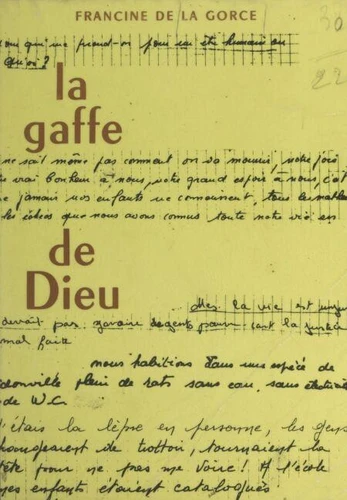 FRANCINE DE LA GORCE
30
22
qu'on me prend-on pour un être humain ou
quoi?
la
gaffe
ne sait même pas comment on va mourir, notre joie
vrai bonheur à nous, notre grand espoir à nous, c'est
jamais nos enfants ne connaissent, tous les
les échecs que nous avons connus toute notre vie
de
Dieu
Mes la vie est
devrait pas y avoir de gents pauvre c'est la justice
mal faite
nous habitions dans une espèce de
bidonville plein de rats sans eau, sans électricité
de W.C.
C'était la lèpre en personne, les gens
changeaient de trottoir, tournaient la
tête pour ne pas me voire! A l'école
mes enfants étaient catalogués